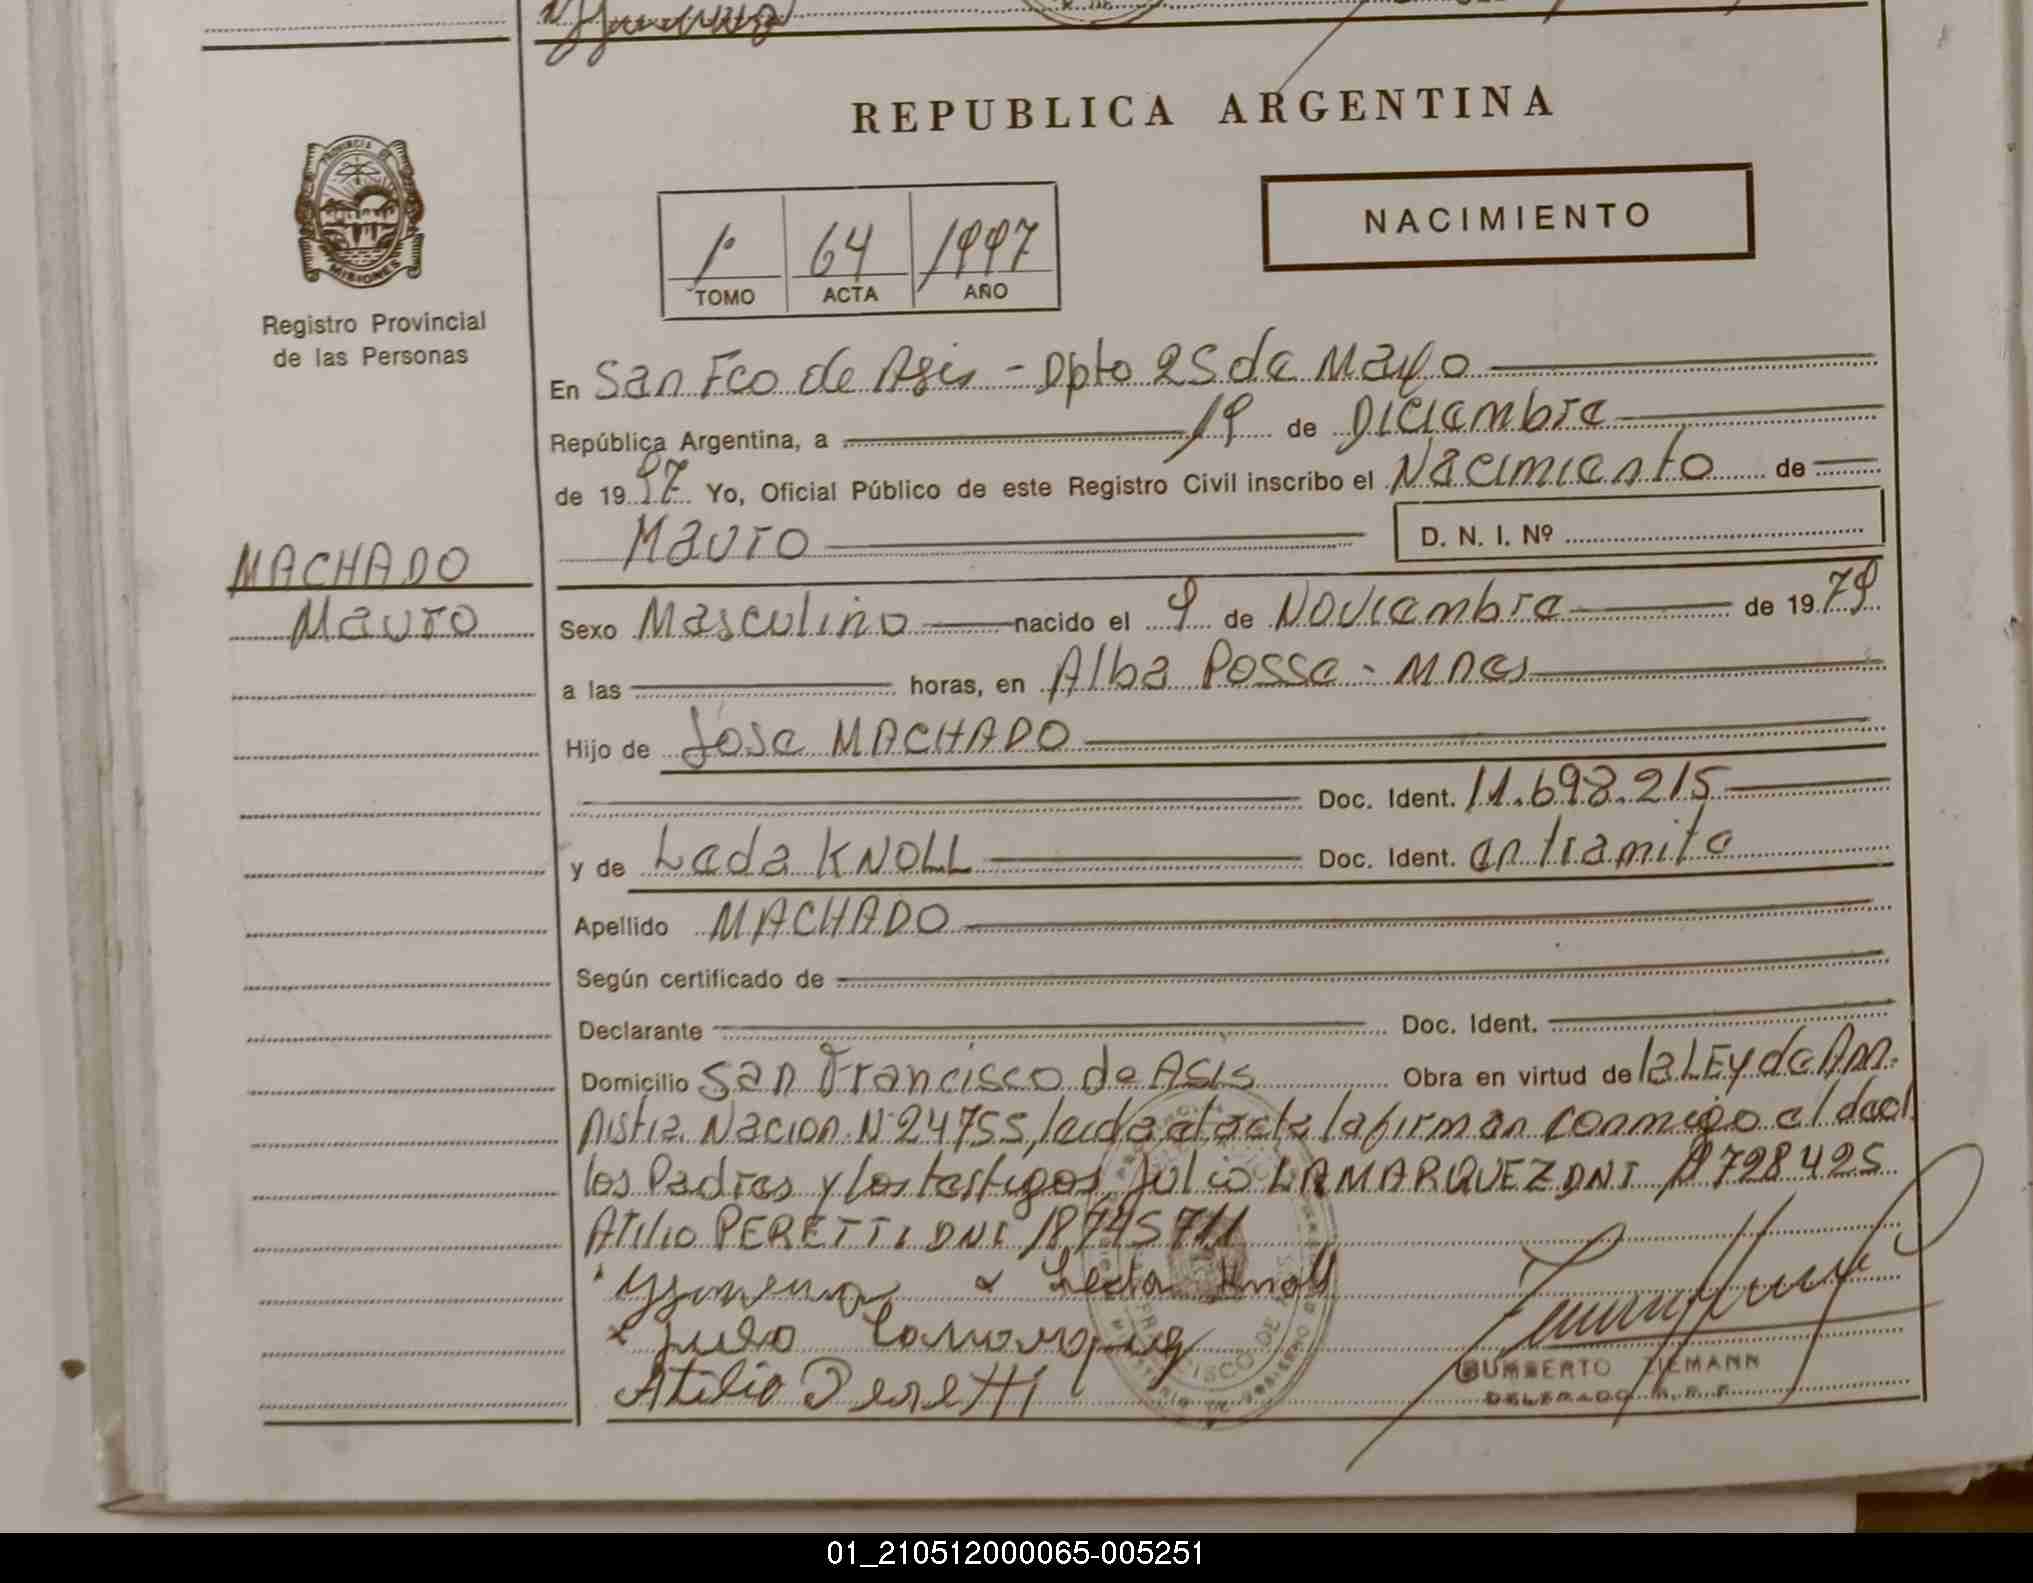 REPUBLICA ARGENTINA
PROVINCIA DE
MISIONES
Registro Provincial
de las Personas
1º 64 1997
TOMO ACTA AÑO
NACIMIENTO
En San Fco de Asis - Dpto 25 de Mayo
República Argentina, a 19 de Diciembre
de 1997 Yo, Oficial Público de este Registro Civil inscribo el Nacimiento de
Mauro D. N. I. Nº
MACHADO
Mauro
Sexo Masculino nacido el 9 de Noviembre de 1979
a las horas, en Alba Posse - Mnes
Hijo de Jose MACHADO
Doc. Ident. 11.698.215
y de Leda KNOLL Doc. Ident. en tramite
Apellido MACHADO
Según certificado de
Declarante Doc. Ident.
Domicilio San Francisco de Asis Obra en virtud de la LEy de Am-
nistia Nacion Nº 24755, leida el acta la firman conmigo el decl.
los Padres y los testigos, Julio LAMARQUEZ DNI 8728425
Atilio PERETTI DNI 18745711
x Leda Knoll
x Julio Lamarquez
Atilio Peretti
HUMBERTO ZIEMANN
DELEGADO R. P. P.
01_210512000065-005251